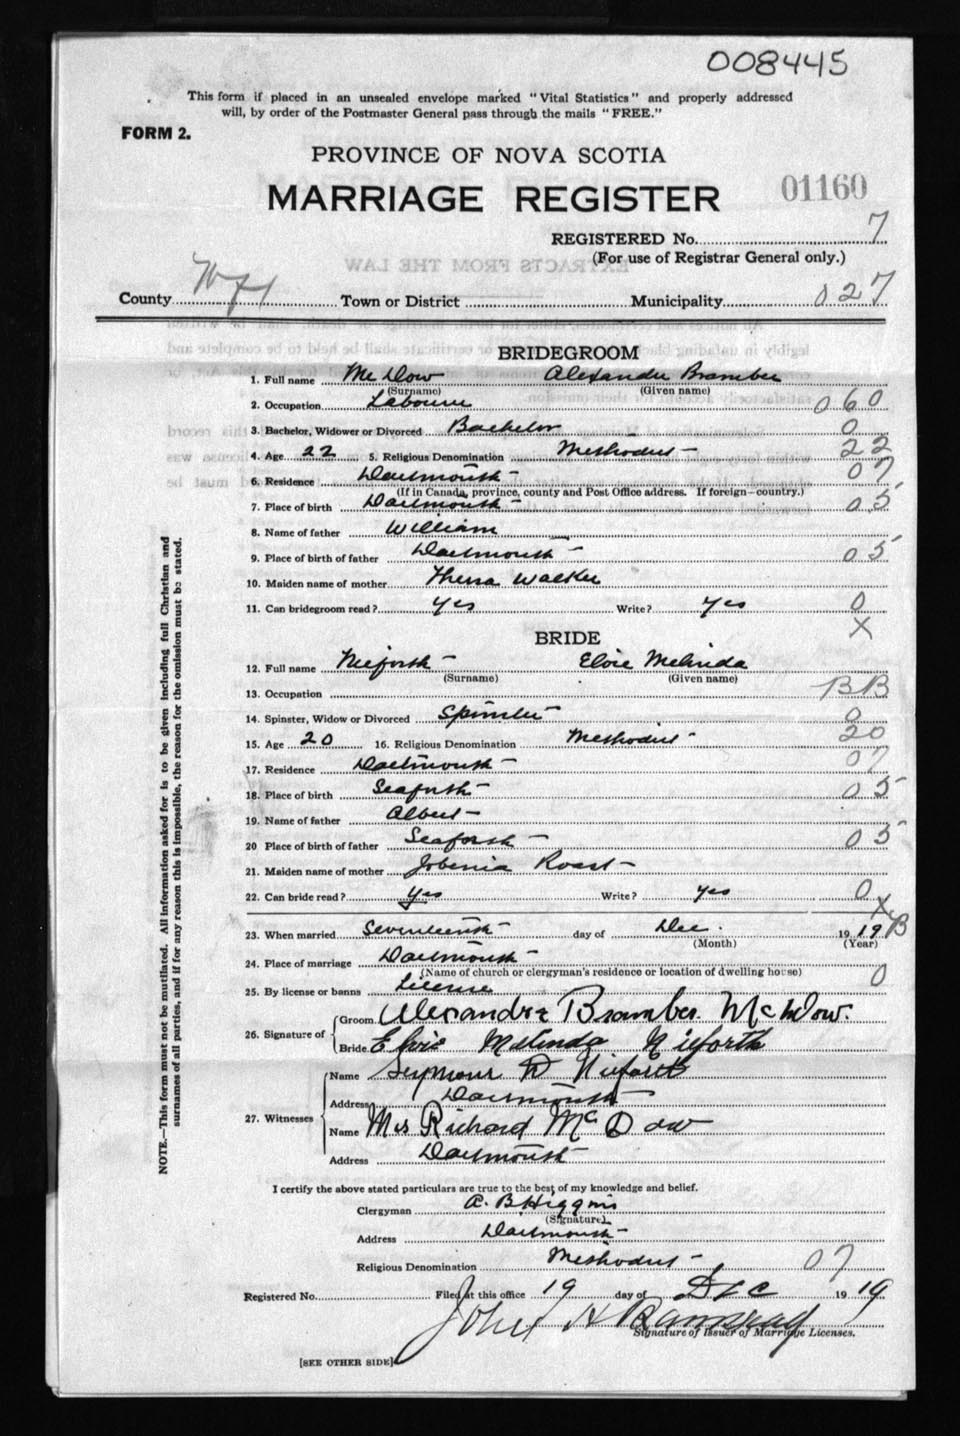 008445
This form if placed in an unsealed envelope marked "Vital Statistics" and properly addressed
will, by order of the Postmaster General pass through the mails "FREE."
FORM 2.
PROVINCE OF NOVA SCOTIA
MARRIAGE REGISTER 01160
REGISTERED No. 7
(For use of Registrar General only.)
EXTRACTS FROM THE LAW
County Hfx Town or District Municipality 027
BRIDEGROOM
1. Full name McDow Alexander Bramber
(Surname) (Given name)
2. Occupation Labourer 060
3. Bachelor, Widower or Divorced Bachelor 0
4. Age 22 5. Religious Denomination Methodist 22
6. Residence Dartmouth 07
(If in Canada, province, county and Post Office address. If foreign—country.)
7. Place of birth Dartmouth 05
8. Name of father William
9. Place of birth of father Dartmouth 05
10. Maiden name of mother Walker
11. Can bridegroom read? Yes Write? Yes 0
X
BRIDE
12. Full name Neiforth Elvie Melinda
(Surname) (Given name)
13. Occupation BB
14. Spinster, Widow or Divorced Spinster 0
15. Age 20 16. Religious Denomination Methodist 20
17. Residence Dartmouth 07
18. Place of birth Seaforth 05
19. Name of father Albert
20 Place of birth of father Seaforth 05
21. Maiden name of mother Jobenia Roast
22. Can bride read? Yes Write? Yes 0
X
23. When married Seventeenth day of Dec. 1919 B
(Month) (Year)
24. Place of marriage Dartmouth
(Name of church or clergyman's residence or location of dwelling house)
25. By license or banns License 0
26. Signature of Groom Alexander Bramber McDow.
Bride Elvie Melinda Nieforth
27. Witnesses Name Seymour D Nieforth
Address Dartmouth
Name Mrs Richard McDow
Address Dartmouth
I certify the above stated particulars are true to the best of my knowledge and belief.
Clergyman A. B. Higgins
(Signature)
Address Dartmouth
Religious Denomination Methodist 07
Registered No. Filed at this office 19 day of Dec 1919
John H
Signature of Issuer of Marriage Licenses.
[SEE OTHER SIDE]
NOTE.—This form must not be mutilated. All information asked for is to be given including full Christian and
surnames of all parties, and if for any reason this is impossible, the reason for the omission must be stated.